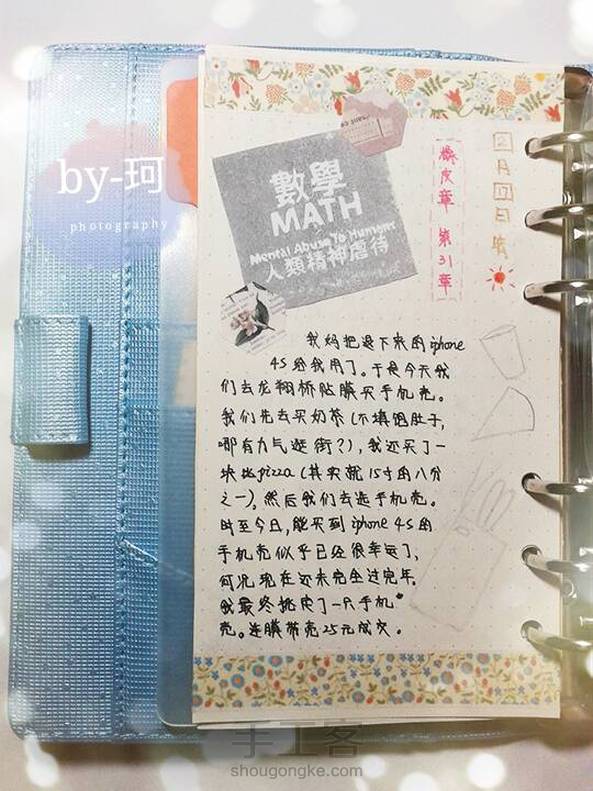 by-珂
photography
數學
MATH
Mental Abuse To Humans
人類精神虐待
橡皮章 第31章
2月17日 晴
我妈把退下来的iphone
4S给我用了。于是今天我
们去龙翔桥贴膜买手机壳。
我们先去买奶茶(不填饱肚子,
哪有力气逛街?),我还买了一
块比pizza(其实就15寸的八分
之一)。然后我们去选手机壳。
时至今日,能买到iphone 4S的
手机壳似乎已经很幸运了,
何况现在还未完全过完年。
我最终挑定了一只手机
壳。连膜带壳25元成交。
手工客
shougongke.com